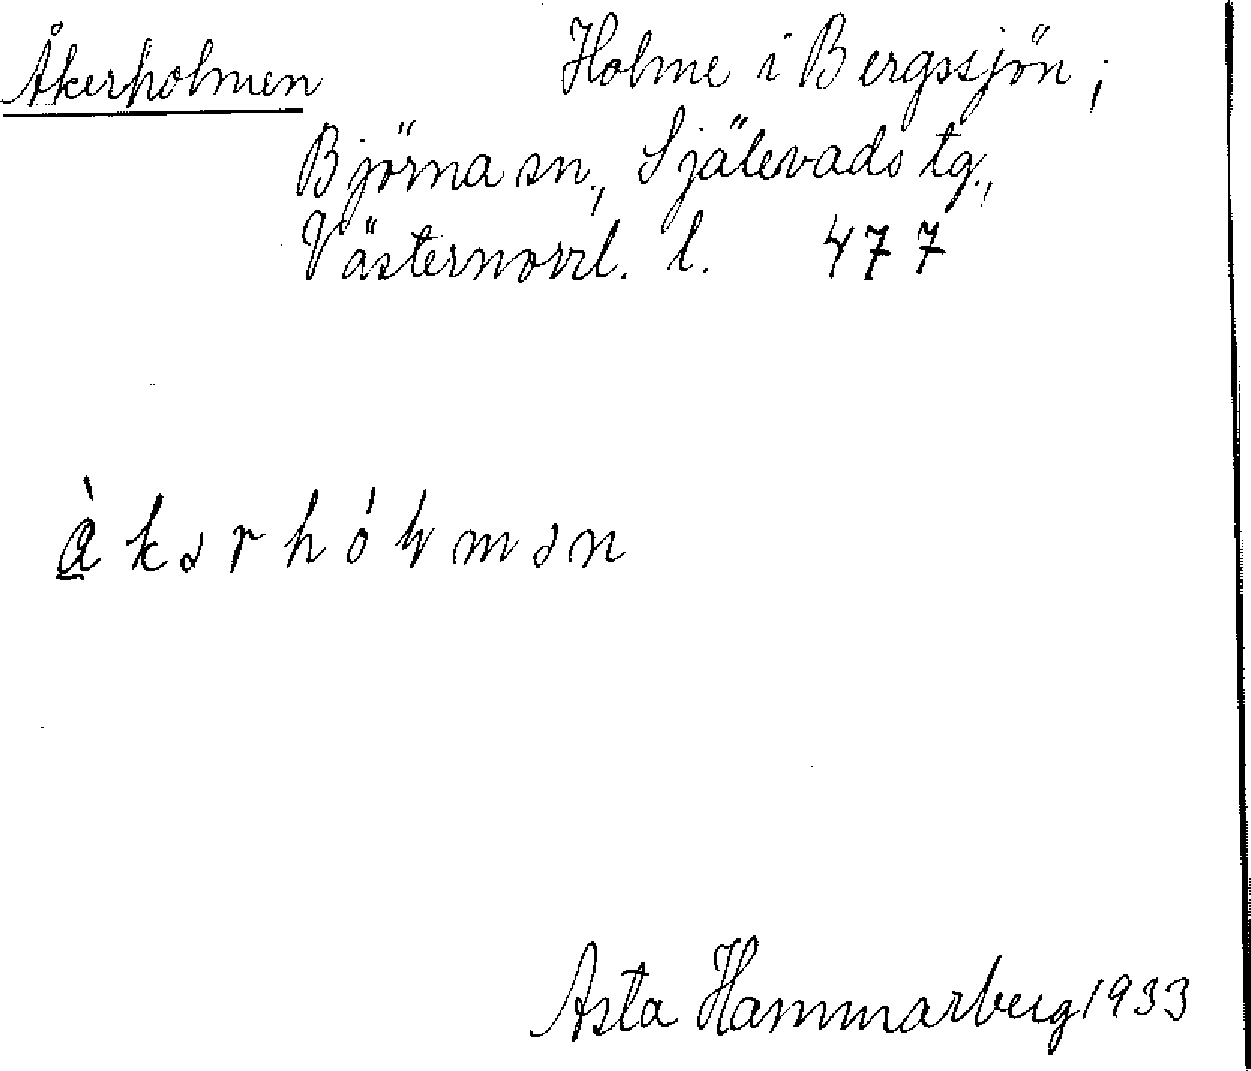 Åkerholmen Holme i Bergssjön;
Björna sn., Själevads tg.,
Västernorrl. l. 477
a̠̒kərhóɫmən
Asta Hammarberg 1933